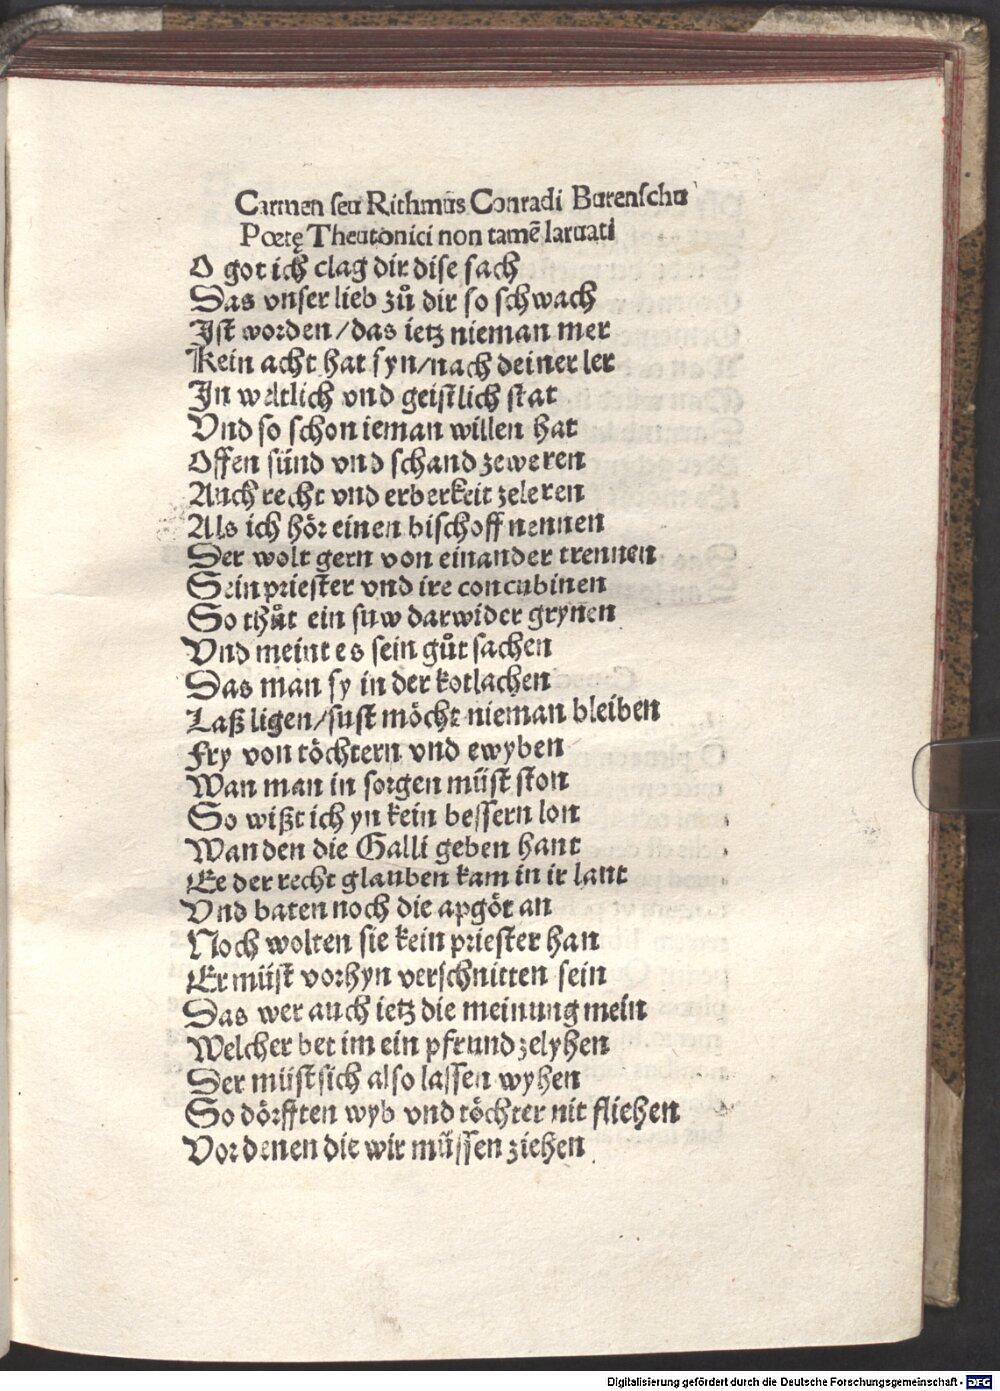 Carmen seu Rithmus Conradi Burenschu
Poetę Theutonici non tamē laruati
O got ich clag dir dise sach
Das vnser lieb zů dir so schwach
Ist worden/das ietz nieman mer
Kein acht hat syn/nach deiner ler
In weltlich vnd geistlich stat
Vnd so schon ieman willen hat
Offen sünd vnd schand zeweren
Auch recht vnd erberkeit zeleren
Als ich hör einen bischoff nennen
Der wolt gern von einander trennen
Sein priester vnd ire concubinen
So thůt ein suw darwider grynen
Vnd meint es sein gůt sachen
Das man sy in der kotlachen
Laß ligen/sust möcht nieman bleiben
Fry von töchtern vnd ewyben
Wan man in sorgen müst ston
So wißt ich yn kein bessern lon
Wan den die Galli geben hant
Ee der recht glauben kam in ir lant
Vnd baten noch die apgöt an
Noch wolten sie kein priester han
Er müst vorhyn verschnitten sein
Das wer auch ietz die meinung mein
Welcher bet im ein pfrund zelyhen
Der müst sich also lassen wyhen
So dörfften wyb vnd töchter nit fliehen
Vor denen die wir müssen ziehen
Digitalisierung gefördert durch die Deutsche Forschungsgemeinschaft - DFG